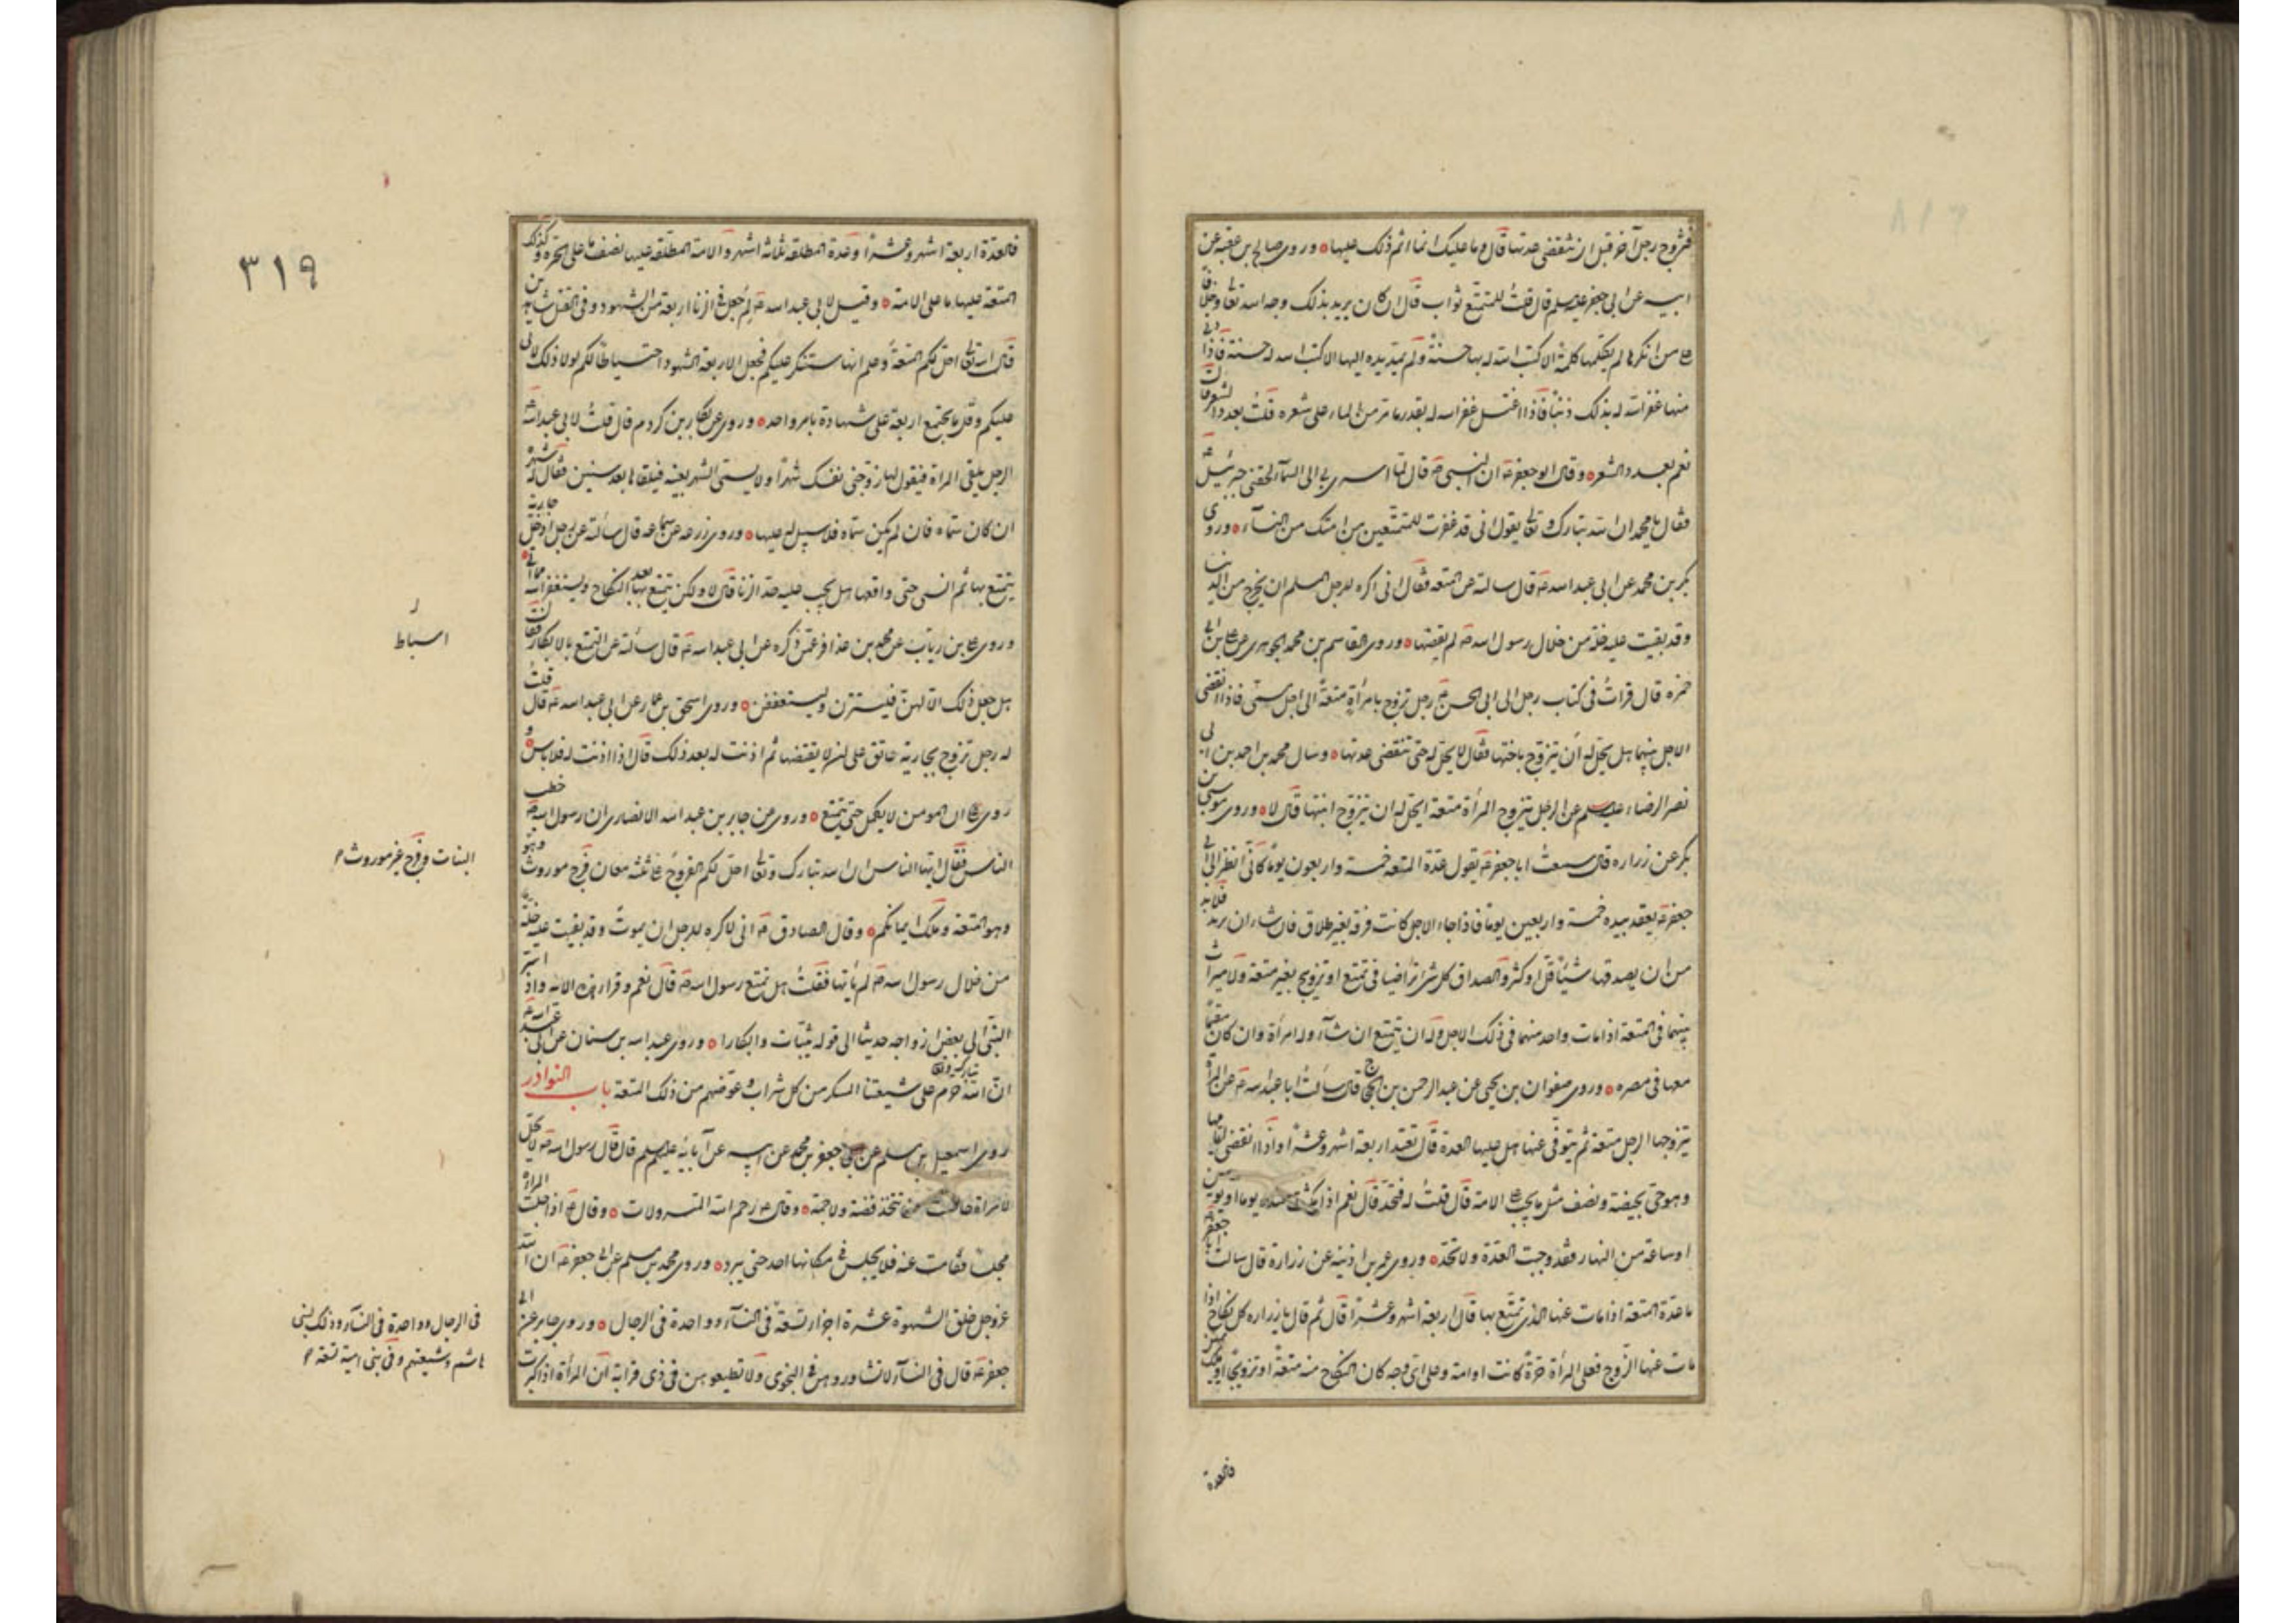 فتزوج رجل آخر قبل ان تنقضى عدتها قال وما عليك انما اثم ذلك عليها وروى صالح بن عقبه عن
ابيه عن ابى جعفر عليه السلم قال قلت للمتمتع ثواب قال ان كان يريد بذلك وجه الله تعالى وخلافا
على من انكرها لم يكلمها كلمة الا كتب الله له بها حسنة ولم يمد يده اليها الا كتب الله له حسنة فاذا دنى
منها غفر الله له بذلك ذنبا فاذا اغتسل غفر الله له بقدر ما مر من الماء على شعره قلت بعدد الشعر قال
نعم بعدد الشعر وقال ابو جعفر ع ان النبى ص قال لما اسرى بى الى السماء لحقنى جبرئيل ع
فقال يا محمد ان الله تبارك وتعالى يقول انى قد غفرت للمتمتعين من امتك من النساء وروى
بكر بن محمد عن ابى عبد الله ع قال سالته عن المتعه فقال انى اكره للرجل المسلم ان يخرج من الدنيا
وقد بقيت عليه خلة من خلال رسول الله ص لم يقضها وروى القاسم بن محمد الجوهرى عن على بن ابى
حمزه قال قرات فى كتاب رجل الى ابى الحسن ع رجل تزوج بامرأة متعة الى اجل مسمى فاذا انقضى
الاجل بينهما هل يحل له ان يتزوج باختها فقال لا يحل له حتى تنقضى عدتها وسال محمد بن احمد بن ابى
نصر الرضا عليه السلم عن الرجل يتزوج المرأة متعة ايحل له ان يتزوج ابنتها قال لا وروى موسى بن
بكر عن زراره قال سمعت ابا جعفر ع يقول عدة المتعه خمسة واربعون يوما كانى انظر الى ابى
جعفر ع يعقد بيده خمسة واربعين يوما فاذا جاء الاجل كانت فرقة بغير طلاق فان شاء ان يزيد فلا بد
من ان يصدقها شيئا قل او كثر والصداق كل شئ تراضيا فى تمتع او تزويج بغير متعة ولا ميراث
بينهما فى المتعة اذا مات واحد منهما فى ذلك الاجل وله ان يتمتع ان شاء وله امرأة وان كان مقيما
معها فى مصره وروى صفوان بن يحيى عن عبد الرحمن بن الحجاج قال سالت ابا عبد الله ع عن المراة
يتزوجها الرجل متعة ثم يتوفى عنها هل عليها العدة قال تعتد اربعة اشهر وعشرا واذا انقضى ايامها
وهو حى بحيضة ونصف مثل ما يجب على الامة قال قلت له فتحد قال نعم اذا مكثت عنده يوما او يومين
او ساعة من النهار فقد وجبت العدة ولا تحد وروى عمر بن اذينه عن زرارة قال سالت ابا جعفر ع
ما عدة المتعة اذا مات عنها الذى تمتع بها قال اربعة اشهر وعشرا قال ثم قال يا زراره كل نكاح اذا
مات عنها الزوج فعلى المرأة حرة كانت او امة وعلى اى وجه كان النكاح منه متعة او تزويجا او ملك يمين
فالعدة
٣١٩
فالعدة اربعة اشهر وعشرا وعدة المطلقه ثلثة اشهر والامة المطلقه عليها نصف ما على الحرة وكذلك
المتعة عليها ما على الامة وقيل لابى عبد الله ع لم جعل فى الزنا اربعة من الشهود وفى القتل شاهدين
قال ان الله تعالى احل لكم المتعة وعلم انها ستنكر عليكم فجعل الاربعة الشهود احتياطا لكم لولا ذلك لاتى
عليكم وقل ما يجتمع اربعة على شهادة بامر واحد وروى عن بكار بن كردم قال قلت لابى عبد الله ع
الرجل يلقى المراة فيقول لها زوجنى نفسك شهرا ولا يسمى الشهر بعينه فيلقاها بعد سنين فقال له شهره
ان كان سماه فان لم يكن سماه فلا سبيل له عليها وروى زرعه عن سماعه قال سالته عن رجل ادخل جارية
يتمتع بها ثم انسى حتى واقعها هل يجب عليه حد الزنا قال لا ولكن يتمتع بها بعد النكاح ويستغفر الله مما اتى
وروى على بن رباب عن محمد بن عذافر عمن ذكره عن ابى عبد الله ع قال سالته عن التمتع بالابكار فقال
اسباط
هل جعل ذلك الا لهن فليستترن وليستعففن وروى اسحق بن عمار عن ابى عبد الله ع قال قلت
له رجل تزوج بجارية عاتق على ان لا يقتضها ثم اذنت له بعد ذلك قال اذا اذنت له فلا باس و
روى ان المومن لا يكمل حتى يتمتع وروى عن جابر بن عبد الله الانصارى ان رسول الله ص خطب
الناس فقال ايها الناس ان الله تبارك وتعالى احل لكم الفروج على ثلثه معان فرج موروث وهو
البنات وفرج غير موروث
وهو المتعة وملك ايمانكم وقال الصادق ع انى لاكره للرجل ان يموت وقد بقيت عليه خلة
من خلال رسول الله ص لم ياتها فقلت هل تمتع رسول الله ص قال نعم وقرا هذه الاية واذ اسر
النبى الى بعض ازواجه حديثا الى قوله ثيبات وابكارا وروى عبد الله بن سنان عن ابى عبد الله ع
ان الله تبارك وتعالى حرم على شيعتنا المسكر من كل شراب وعوضهم من ذلك المتعة باب النوادر
روى اسمعيل بن مسلم عن جعفر بن محمد عن ابيه عن آبائه عليهم السلم قال قال رسول الله ص لا يحل
لامراة حاضت ان تتخذ قصة ولا جمة وقال ع رحم الله المتسرولات وقال ع اذا جلست المراة
مجلسا فقامت عنه فلا يجلس فى مكانها احد حتى يبرد وروى محمد بن مسلم عن ابى جعفر ع ان الله
عز وجل خلق الشهوة عشرة اجزاء تسعة فى النساء وواحدة فى الرجال وروى جابر عن ابى
فى الرجال وواحدة فى النساء وذلك لبنى
هاشم وشيعتهم وفى بنى امية تسعة
جعفر ع قال فى النساء لا تشاوروهن فى النجوى ولا تطيعوهن فى ذى قرابة ان المرأة اذا كبرت